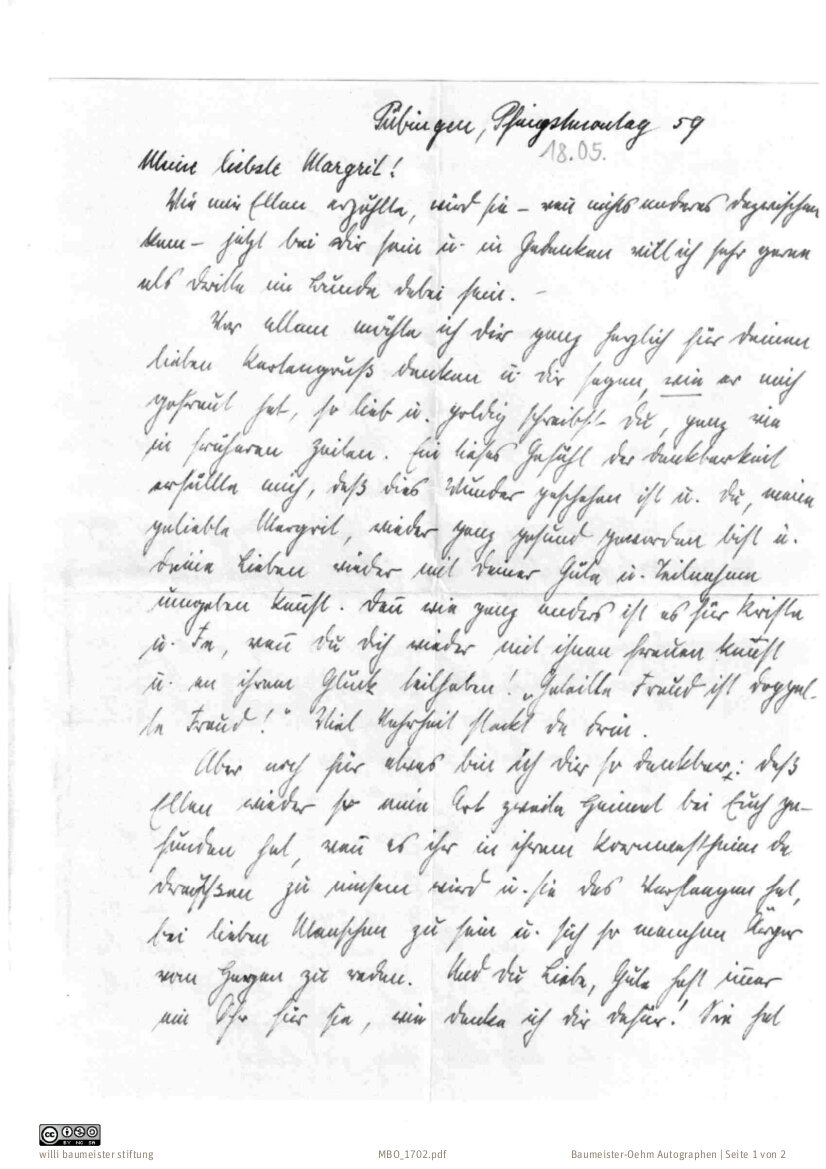 Tübingen, Pfingstmontag 59
18.05.
Meine liebste Margrit!
Wie mir Ellen erzählte, wird sie – wenn nichts anderes dazwischen
kam – jetzt bei Dir sein u. in Gedanken will ich sehr gerne
als Dritte im Bunde dabei sein. –
Vor allem möchte ich Dir ganz herzlich für Deinen
lieben Kartengruß danken u. Dir sagen, wie er mich
gefreut hat, so lieb u. goldig schreibst Du, ganz wie
in früheren Zeiten. Ein tiefes Gefühl der Dankbarkeit
erfüllte mich, daß dies Wunder geschehen ist u. Du, meine
geliebte Margrit, wieder ganz gesund geworden bist u.
Deine Lieben wieder mit Deiner Güte u. Teilnahme
umgeben kannst. Denn wie ganz anders ist es für Krista
u. Fe, wenn Du Dich wieder mit ihnen freuen kannst
u. an ihrem Glück teilhaben! „Geteilte Freud ist doppel-
te Freud!" Viel Wahrheit steckt da drin.
Aber noch für etwas bin ich Dir so dankbar: daß
Ellen wieder so eine Art zweite Heimat bei Euch ge-
funden hat, wenn es ihr in ihrem Kornwestheim da
draußen zu einsam wird u. sie das Verlangen hat,
bei lieben Menschen zu sein u. sich so manchen Ärger
vom Herzen zu reden. Und Du Liebe, Gute hast immer
ein Ohr für sie, wie danke ich Dir dafür! Sie hat
CC BY NC SA
willi baumeister stiftung
MBO_1702.pdf
Baumeister-Oehm Autographen | Seite 1 von 2